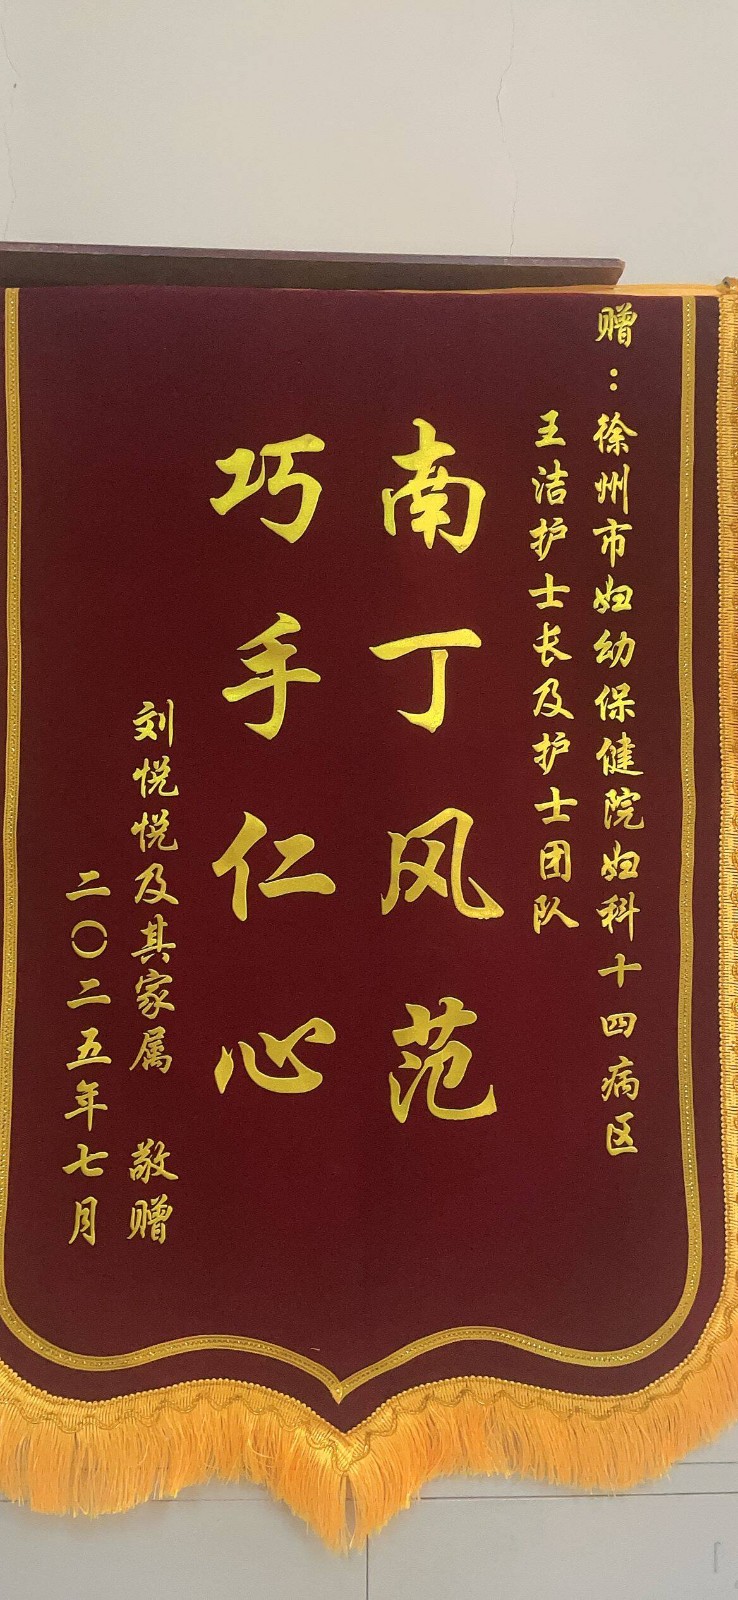 赠：徐州市妇幼保健院妇科十四病区
王洁护士长及护士团队
南丁风范
巧手仁心
刘悦悦及其家属 敬赠
二〇二五年七月